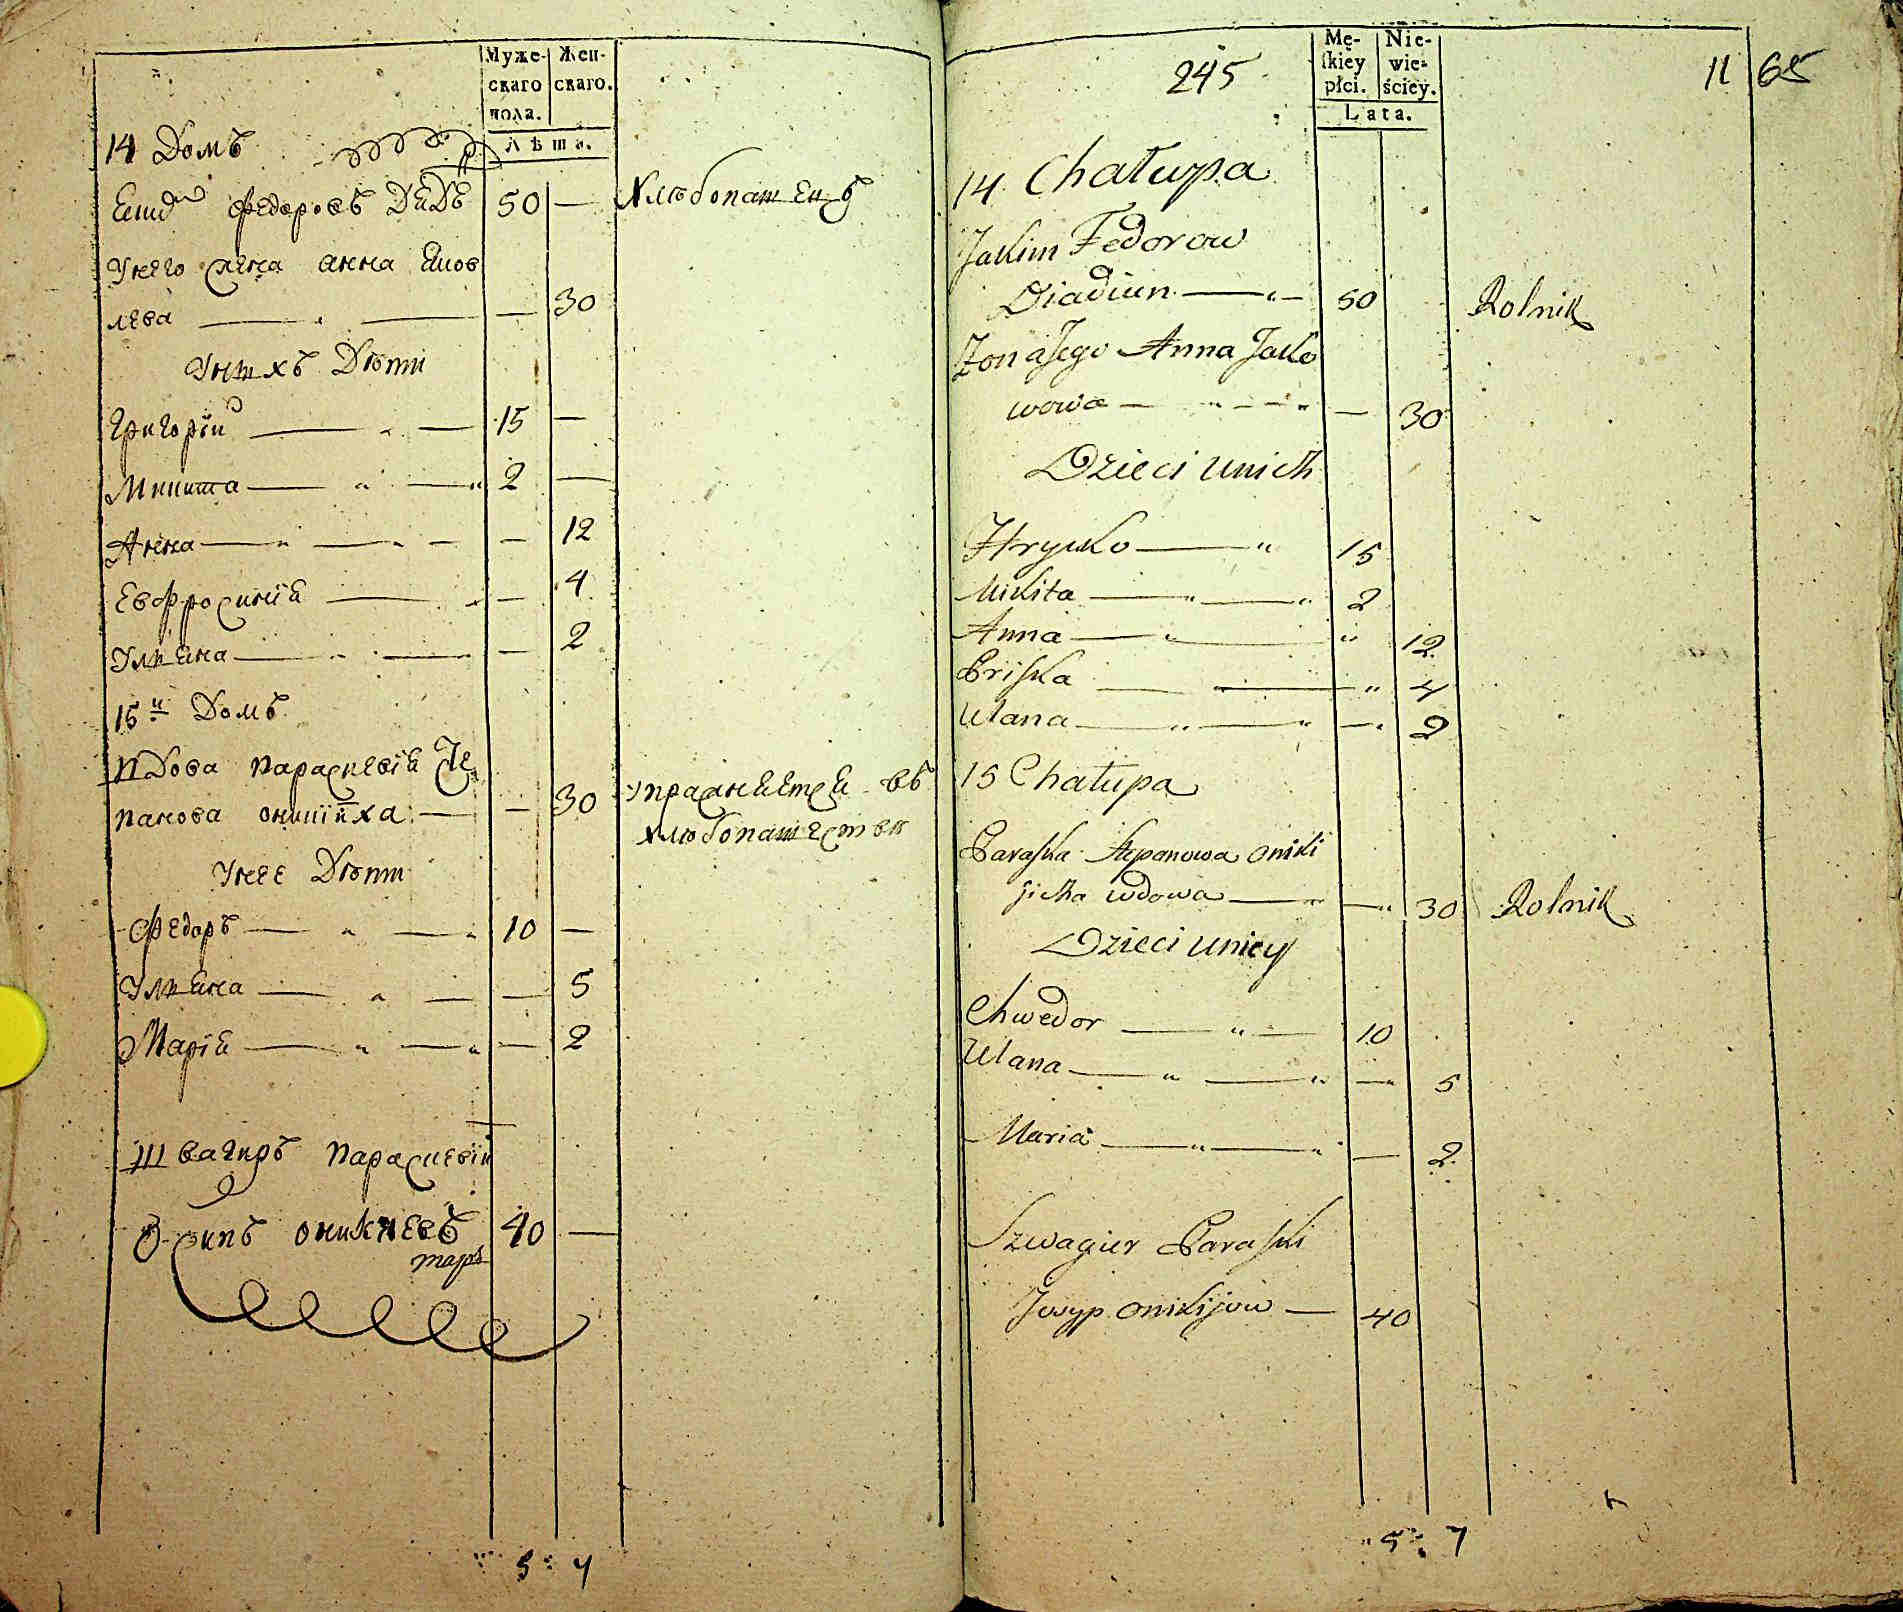 Муже-
скаго
пола.
Жен-
скаго.
Лѣта.
14 Домъ
Якимъ Федоровъ Дядь 50 — Хлѣбопашецъ
У него жена Анна Яков
лева — — — 30
У нихъ Дѣти
Григорій — " — 15 —
Микита — " — " 2 —
Анна — " — " — — 12
Евфросинія — " — 4
Ульяна — " — " — 2
15й Домъ
Вдова Параскевія Сте
панова Оникіиха — — 30 упражняется въ
хлѣбопашествѣ
У нее Дѣти
Федоръ — " — " 10 —
Ульяна — " — — 5
Марія — " — " — 2
Швагиръ Параскевіи
Осипъ Оникиевъ 40 —
5 : 7
245
Mę-
skiey
płci.
Nie-
wie-
ściey.
Lata.
11 65
14 Chałupa
Jakim Fedorow
Dziadiun — " — 50 Rolnik
Zona Jego Anna Jako
wowa — " — " — 30
Dzieci unich
Hryćko — " 15
Mikita — " — " 2
Anna — " — " 12
Priska — — " 4
Ulana — " — " — " 2
15 Chałupa
Paraska Stepanowa Oniki
jicha wdowa — " — " 30 Rolnik
Dzieci uniey
Chwedor — " — 10
Ulana — " — " — " 5
Maria — " — " — 2
Szwagier Paraski
Josyp Onikijow — 40
5 : 7